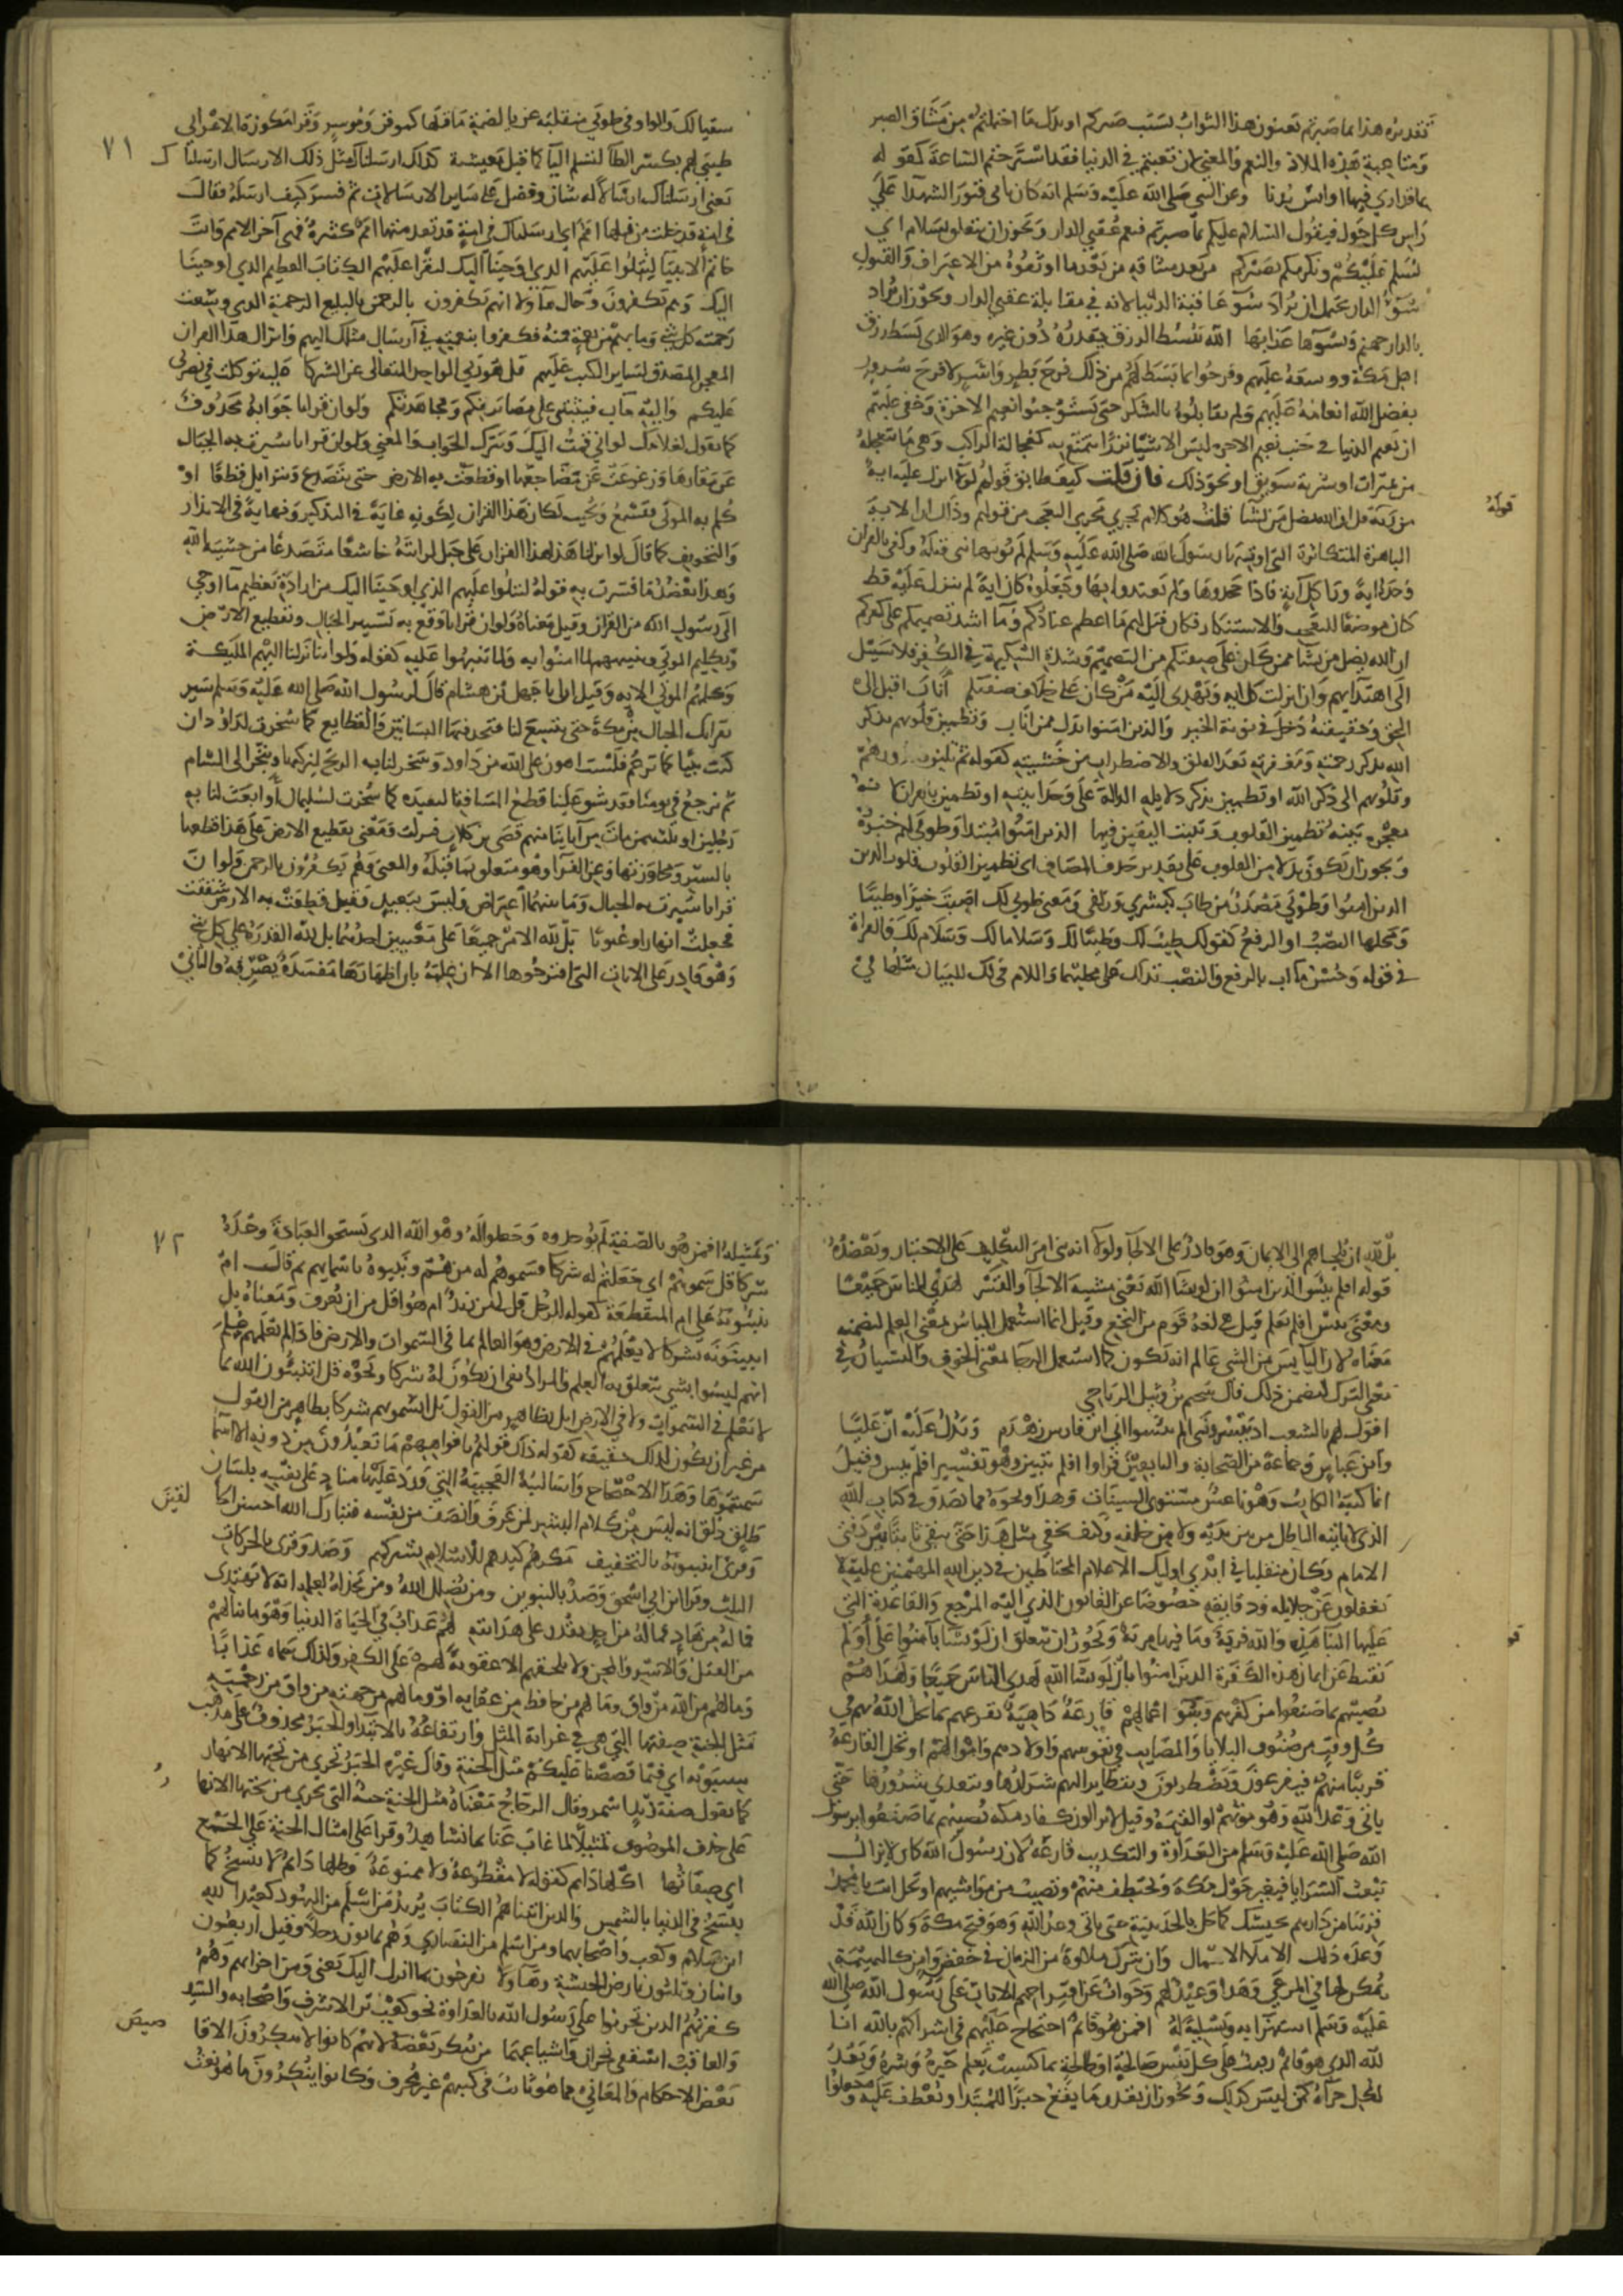 تقديره هذا بما صبرتم تعنون هذا الثواب بسبب صبركم او بدل ما احتملتم من مشاق الصبر
ومتاعبه هذه الملاذ والنعم والمعنى لئن تعبتم في الدنيا فقد استرحتم الساعة كقوله
بما قد ارى فيها اوانس بدنا وعن النبي صلى الله عليه وسلم انه كان ياتي قبور الشهدا على
راس كل حول فيقول السلام عليكم بما صبرتم فنعم عقبى الدار ويجوز ان يتعلق بسلام اي
نسلم عليكم ونكرمكم بصبركم من بعد ميثاقه من بعد ما اوثقوه من الاعتراف والقبول
سوء الدار يحتمل ان يراد سوء عاقبة الدنيا لانه في مقابلة عقبى الدار ويجوز ان يراد
بالدار جهنم وبسوئها عذابها الله يبسط الرزق ويقدره دون غيره وهو الذي بسط رزق
اهل مكة ووسعه عليهم وفرحوا بما بسط لهم من ذلك فرح بطر واشر لا فرح سرور
بفضل الله انعامه عليهم ولم يقابلوه بالشكر حتى يستوجبوا نعيم الاخرة وخفي عليهم
ان نعيم الدنيا في جنب نعيم الاخرة ليس الا شيئا نزرا يتمتع به كعجالة الراكب وهي ما يتعجله
من تميرات او شربة سويق او نحو ذلك فان قلت كيف طابق قولهم لولا انزل عليه اية
من ربه قل ان الله يضل من يشا قلت هو كلام يجري مجرى التعجب من قولهم وذلك ان الاية
قوله
الباهرة المتكاثرة التي اوتيها رسول الله صلى الله عليه وسلم لم يؤتها نبي قبله وكفى بالقران
وحده اية ورا كل اية فاذا جحدوها ولم يعتدوا بها وجعلوه كان اية لم ينزل عليه قط
كان موضعا للتعجب والاستنكار فكان قيل لهم ما اعظم عنادكم وما اشد تصميمكم على كفركم
ان الله يضل من يشا ممن كان على صفتكم من التصميم وشدة الشكيمة في الكفر فلا سبيل
الى اهتدائهم وان انزلت كل اية ويهدي اليه من كان على خلاف صفتكم اناب اقبل الى
الحق وحقيقته دخل في نوبة الخير والذين امنوا بدل ممن اناب وتطمئن قلوبهم بذكر
الله بذكر رحمته ومغفرته بعد القلق والاضطراب من خشيته كقوله ثم تلين جلودهم
وقلوبهم الى ذكر الله او تطمئن بذكر دلايله الدالة على وحدانيته او تطمئن بالقران لانه
معجزة بينة تطمئن القلوب وتثبت اليقين فيها الذين امنوا مبتدا وطوبى لهم خبره
ويجوز ان يكون بدلا من القلوب على تقدير حذف المضاف اي تطمئن القلوب قلوب الذين
الذين امنوا وطوبى مصدر من طاب كبشرى وزلفى ومعنى طوبى لك اصبت خيرا وطيبا
ومحلها النصب او الرفع كقولك طيبا لك وطيب لك وسلاما لك وسلام لك والقراة
في قوله وحسن مآب بالرفع والنصب تدلك على محلها واللام في لك للبيان مثلها في
٧١
سقيا لك والواو في طوبى منقلبة عن يا لضمة ما قبلها كموقن وموسر وقرا مكوزة الاعرابي
طيبى لهم بكسر الطا لتسلم اليا كما قيل معيشة كذلك ارسلناك مثل ذلك الارسال ارسلناك
يعني ارسلناك ارسالا له شان وفضل على ساير الارسالات ثم فسر كيف ارسله فقال
في امة قد خلت من قبلها امم اي ارسلناك في امة قد تقدمتها امم كثيرة فهي آخر الامم وانت
خاتم الانبيا لتتلوا عليهم الذي اوحينا اليك لتقرا عليهم الكتاب العظيم الذي اوحينا
اليك وهم يكفرون وحال هؤلا انهم يكفرون بالرحمن بالبليغ الرحمة الذي وسعت
رحمته كل شي وما بهم من نعمة فمنه فكفروا بنعمته في ارسال مثلك اليهم وانزال هذا القران
المعجز المصدق لساير الكتب عليهم قل هو ربي الواحد المتعالي عن الشركا عليه توكلت في نصرتي
عليكم واليه متاب فيثيبني على مصابرتكم ومجاهدتكم ولو ان قرانا جوابه محذوف
كما تقول لغلامك لو اني قمت اليك وتترك الجواب والمعنى ولو ان قرانا سيرت به الجبال
عن مقارها وزعزعت عن مضاجعها او قطعت به الارض حتى تتصدع وتتزايل قطعا او
كلم به الموتى فتسمع وتجيب لكان هذا القران لكونه غاية في التذكير ونهاية في الانذار
والتخويف كما قال لو انزلنا هذا القران على جبل لرايته خاشعا متصدعا من خشية الله
وهذا يعضد ما فسرت به قوله لتتلوا عليهم الذي اوحينا اليك من ارادة تعظيم ما اوحي
الى رسول الله من القران وقيل معناه ولو ان قرانا وقع به تسيير الجبال وتقطيع الارض
وتكليم الموتى وتنبيههم لما امنوا به ولما تنبهوا عليه كقوله ولو اننا نزلنا اليهم الملائكة
وكلمهم الموتى الاية وقيل ان ابا جهل بن هشام قال لرسول الله صلى الله عليه وسلم سير
بقرانك الجبال عن مكة حتى تتسع لنا فنتخذ فيها البساتين والقطايع كما سخرت لداوُد ان
كنت نبيا كما تزعم فلست اهون على الله من داود وسخر لنا به الريح لنركبها ونتجر الى الشام
ثم نرجع في يومنا فقد شق علينا قطع المسافة البعيدة كما سخرت لسليمان او ابعث لنا به
رجلين او ثلثة ممن مات من آباينا منهم قصي بن كلاب فنزلت ومعنى تقطيع الارض على هذا قطعها
بالسير ومجاوزتها وعن الفرا وهو متعلق بما قبله والمعنى وهم يكفرون بالرحمن ولو ان
قرانا سيرت به الجبال وما بينهما اعتراض وليس ببعيد وقيل قطعت به الارض شققت
فجعلت انهارا وعيونا بل لله الامر جميعا على معنيين احدهما بل لله القدرة على كل شي
وهو قادر على الايات التي اقترحوها الا ان علمه بان اظهارها مفسدة يصرفه والثاني
بل لله ان يلجئهم الى الايمان وهو قادر على الالجا ولولا انه بنى امر التكليف على الاختيار ويعضده
قوله افلم ييئس الذين امنوا ان لو يشا الله يعني مشيئة الالجا والقسر لهدى الناس جميعا
ومعنى ييئس افلم يعلم قيل هي لغة قوم من النخع وقيل انما استعمل الياس بمعنى العلم لتضمنه
معناه لان اليايس من الشي عالم انه لا يكون كما استعمل الرجا بمعنى الخوف والنسيان في
معنى الترك لتضمن ذلك قال سحيم بن وثيل الرياحي
اقول لهم بالشعب اذ ييسرونني الم تيئسوا اني ابن فارس زهدم ويدل عليه ان عليا
وابن عباس وجماعة من الصحابة والتابعين قراوا افلم يتبين وهو تفسير افلم ييئس وقيل
انما كتبه الكاتب وهو ناعس مستوي السينات وهذا ونحوه مما لا يصدق في كتاب الله
الذي لا ياتيه الباطل من بين يديه ولا من خلفه وكيف يخفى مثل هذا حتى يبقى ثابتا بين دفتي
الامام وكان متقلبا في ايدي اوليك الاعلام المحتاطين في دين الله المهيمنين عليه لا
يغفلون عن جلايله ودقايقه خصوصا عن القانون الذي اليه المرجع والقاعدة التي
عليها البنا هذه والله فرية ما فيها مرية ويجوز ان يتعلق ان لو يشا بآمنوا على اولم
قو
يقنط عن ايمان هذه الكفرة الذين امنوا بان لو يشا الله لهدى الناس جميعا ولهداهم
تصيبهم بما صنعوا من كفرهم وسوء اعمالهم قارعة داهية تقرعهم بما يحل الله بهم في
كل وقت من صنوف البلايا والمصايب في نفوسهم واولادهم واموالهم او تحل القارعة
قريبا منهم فيفزعون ويضطربون ويتطاير اليهم شرارها ويتعدى شرورها حتى
ياتي وعد الله وهو موتهم او القيمة وقيل لا يزال كفار مكة تصيبهم بما صنعوا برسول
الله صلى الله عليه وسلم من العداوة والتكذيب قارعة لان رسول الله كان لا يزال
يبعث السرايا فيغير حول مكة ويختطف منهم وتصيب من مواشيهم او تحل انت يا محمد
قريبا من دارهم بجيشك كما حل بالحديبية حتى ياتي وعد الله وهو فتح مكة وكان الله قد
وعده ذلك الاملا الامهال وان يترك ملاوة من الزمان في خفض وامن كالبهيمة
يملى لها في المرعى وهذا وعيد لهم وجواب عن اقتراحهم الايات على رسول الله صلى الله
عليه وسلم استهزا به وتسلية له افمن هو قايم احتجاج عليهم في اشراكهم بالله انا
لله الذي هو قايم رقيب على كل نفس صالحة او طالحة بما كسبت يعلم خيره وشره ويعد
لكل جزاه كمن ليس كذلك ويجوز ان يقدر ما يقع خبرا للمبتدا ويعطف عليه وجعلوا
٧٢
وتمثيله افمن هو بالصفة لم يوحدوه وجعلوا له وهو الله الذي يستحق العبادة وحده
شركا قل سموهم اي جعلتم له شركا فسموهم له من هم ونبئوه باسمايهم ثم قال ام
تنبئونه على ام المنقطعة كقوله للرجل قل لي من زيد ام هو اقل من ان يعرف ومعناه بل
اتنبئونه بشركا لا يعلمهم في الارض وهو العالم بما في السموات والارض فاذا لم يعلمهم علم
انهم ليسوا بشي يتعلق به العلم والمراد نفي ان يكون له شركا ونحوه قل اتنبئون الله بما
لا يعلم في السموات ولا في الارض ام بظاهر من القول بل اتسمونهم شركا بظاهر من القول
من غير ان يكون لذلك حقيقة كقوله ذلك قولهم بافواههم ما تعبدون من دونه الا اسما
سميتموها وهذا الاحتجاج واساليبه العجيبة التي ورد عليها مناد على نفسه بلسان
طلق ذلق انه ليس من كلام البشر لمن عرف وانصف من نفسه فتبارك الله احسن الخا
لقين
وقرئ اتنبئونه بالتخفيف مكرهم كيدهم للاسلام بشركهم وصدوا قرئ بالحركات
الثلث وقرا ابن ابي اسحق وصد بالتنوين ومن يضلل الله ومن يخذله لعلمه انه لا يهتدي
فما له من هاد فما له من احد يقدر على هدايته لهم عذاب في الحياة الدنيا وهو ما ينالهم
من القتل والاسر والمحن ولا يلحقهم الا عقوبة لهم على الكفر ولذلك سماه عذابا
وما لهم من الله من واق وما لهم من حافظ من عذابه او وما لهم من جهته من واق من رحمته
مثل الجنة صفتها التي هي في غرابة المثل وارتفاعه بالابتدا والخبر محذوف على مذهب
سيبويه اي فيما قصصنا عليكم مثل الجنة وقال غيره الخبر تجري من تحتها الانهار
كما تقول صفة زيد اسمر وقال الزجاج معناه مثل الجنة جنة التي تجري من تحتها الانهار
على حذف الموصوف تمثيلا لما غاب عنا بما نشاهد وقرا علي امثال الجنة على الجمع
اي صفاتها اكلها دايم كقوله لا مقطوعة ولا ممنوعة وظلها دايم لا ينسخ كما
ينسخ في الدنيا بالشمس والذين اتيناهم الكتاب يريد من اسلم من اليهود كعبد الله
ابن سلام وكعب واصحابهما ومن اسلم من النصارى وهم ثمانون رجلا وقيل اربعون
واثنان وثلثون بارض الحبشة وهاولا يفرحون بما انزل اليك يعني ومن احزابهم وهم
كفرتهم الذين تحزبوا على رسول الله بالعداوة نحو كعب بن الاشرف واصحابه والسيد
والعاقب اسقفي نجران واشياعهما من ينكر بعضه لانهم كانوا لا ينكرون الاقا
صيص
وبعض الاحكام والمعاني مما هو ثابت في كتبهم غير محرف وكانوا ينكرون ما هو نعت